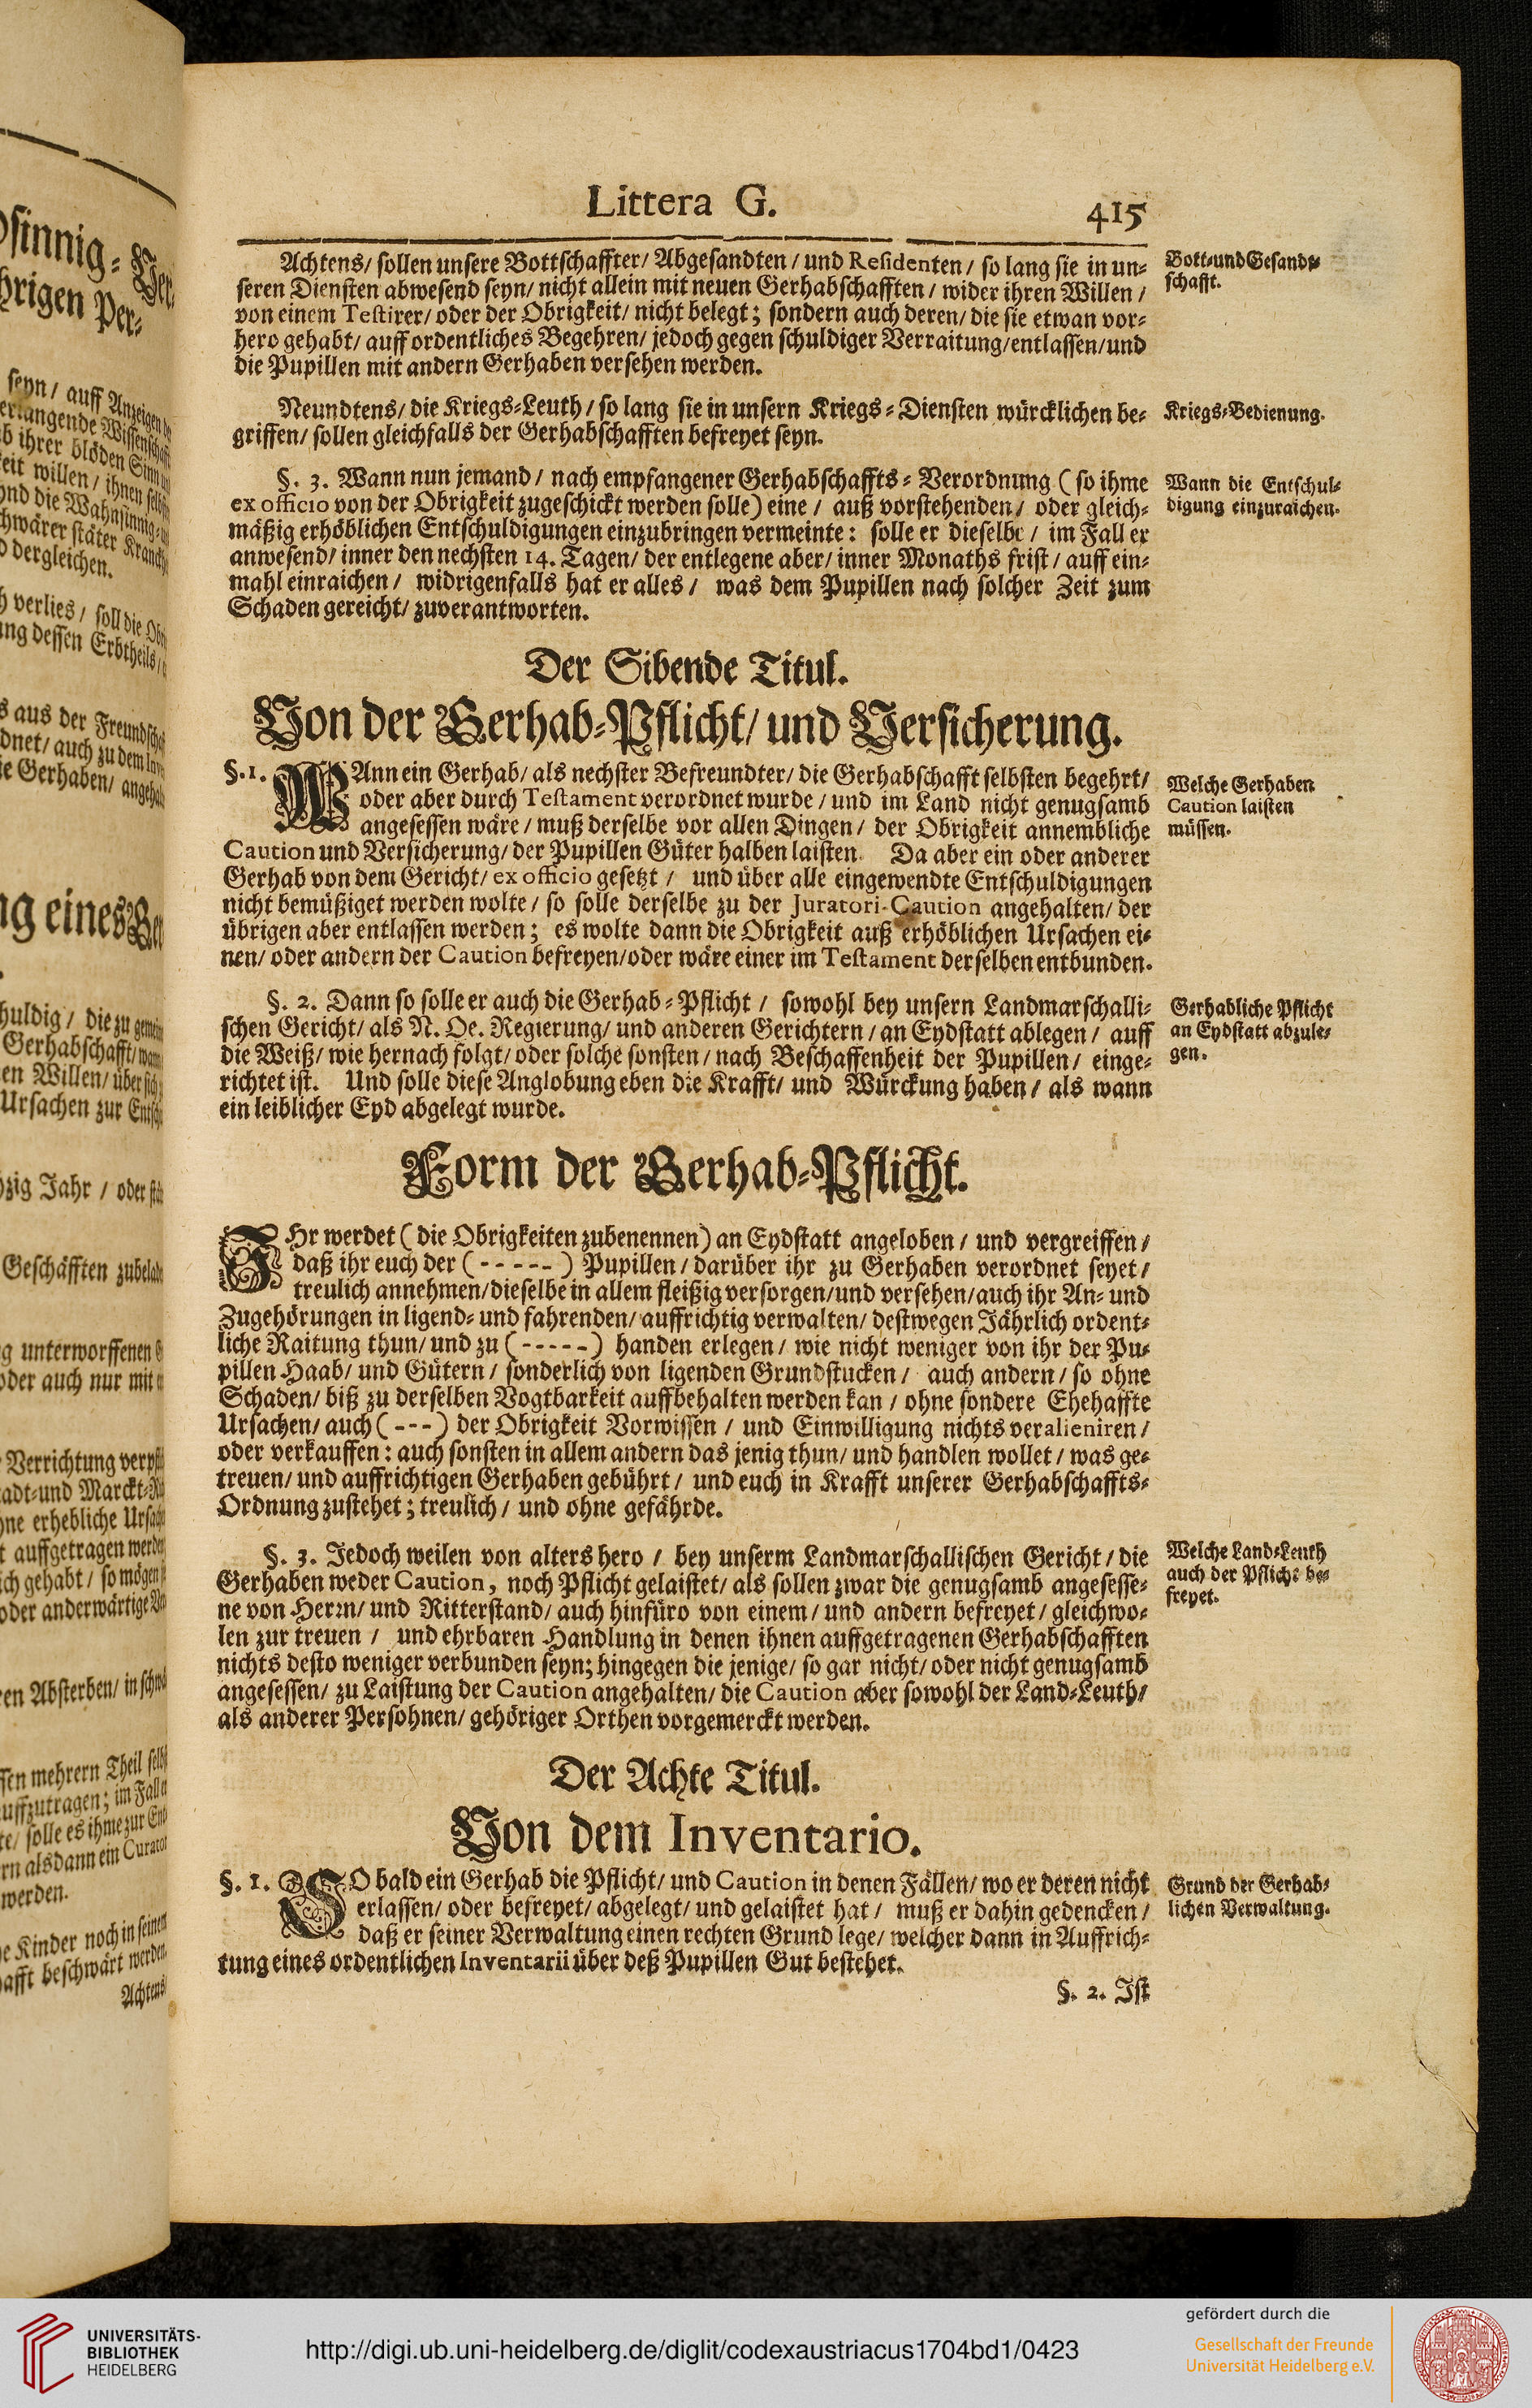 Littera G.
415
Achtens/ sollen unsere Bottschaffter/ Abgesandten / und Residenten / so lang sie in un-
seren Diensten abwesend seyn/ nicht allein mit neuen Gerhabschafften / wider ihren Willen /
von einem Testirer/ oder der Obrigkeit/ nicht belegt; sondern auch deren/ die sie etwan vor-
hero gehabt/ auff ordentliches Begehren/ jedoch gegen schuldiger Verraitung/entlassen/und
die Pupillen mit andern Gerhaben versehen werden.
Bott-und Gesand-
schafft.
Neundtens/ die Kriegs-Leuth / so lang sie in unsern Kriegs-Diensten würcklichen be-
griffen/ sollen gleichfalls der Gerhabschafften befreyet seyn.
Kriegs-Bedienung.
§. 3. Wann nun jemand / nach empfangener Gerhabschaffts-Verordnung (so ihme
ex officio von der Obrigkeit zugeschickt werden solle) eine / auß vorstehenden / oder gleich-
mäßig erhöblichen Entschuldigungen einzubringen vermeinte: solle er dieselbe / im Fall er
anwesend/ inner den nechsten 14. Tagen/ der entlegene aber/ inner Monaths frist / auff ein-
mahl einraichen / widrigenfalls hat er alles / was dem Pupillen nach solcher Zeit zum
Schaden gereicht/ zuverantworten.
Wann die Entschul-
digung einzuraichen.
Der Sibende Titul.
Von der Gerhab-Pflicht/ und Versicherung.
§. 1. WAnn ein Gerhab/ als nechster Befreundter/ die Gerhabschafft selbsten begehrt/
oder aber durch Testament verordnet wurde / und im Land nicht genugsamb
angesessen wäre / muß derselbe vor allen Dingen / der Obrigkeit annembliche
Caution und Versicherung/ der Pupillen Güter halben laisten. Da aber ein oder anderer
Gerhab von dem Gericht/ ex officio gesetzt / und über alle eingewendte Entschuldigungen
nicht bemüßiget werden wolte / so solle derselbe zu der Juratori-Caution angehalten/ der
übrigen aber entlassen werden; es wolte dann die Obrigkeit auß erhöblichen Ursachen ei-
nen/ oder andern der Caution befreyen/oder wäre einer im Testament derselben entbunden.
Welche Gerhaben
Caution laisten
müssen.
§. 2. Dann so solle er auch die Gerhab-Pflicht / sowohl bey unsern Landmarschalli-
schen Gericht/ als N. Oe. Regierung/ und anderen Gerichtern / an Eydstatt ablegen / auff
die Weiß/ wie hernach folgt/ oder solche sonsten / nach Beschaffenheit der Pupillen / einge-
richtet ist. Und solle diese Anglobung eben die Krafft/ und Würckung haben / als wann
ein leiblicher Eyd abgelegt wurde.
Gerhabliche Pflicht
an Eydstatt abzule-
gen.
Form der Gerhab-Pflicht.
IHr werdet (die Obrigkeiten zubenennen) an Eydstatt angeloben / und vergreiffen /
daß ihr euch der (-----) Pupillen / darüber ihr zu Gerhaben verordnet seyet /
treulich annehmen/dieselbe in allem fleißig versorgen/und versehen/auch ihr An- und
Zugehörungen in ligend- und fahrenden/ auffrichtig verwalten/ destwegen Jährlich ordent-
liche Raitung thun/ und zu (-----) handen erlegen / wie nicht weniger von ihr der Pu-
pillen Haab/ und Gütern / sonderlich von ligenden Grundstucken / auch andern / so ohne
Schaden/ biß zu derselben Vogtbarkeit auffbehalten werden kan / ohne sondere Ehehaffte
Ursachen/ auch (---) der Obrigkeit Vorwissen / und Einwilligung nichts veralieniren /
oder verkauffen: auch sonsten in allem andern das jenig thun/ und handlen wollet / was ge-
treuen/ und auffrichtigen Gerhaben gebührt / und euch in Krafft unserer Gerhabschaffts-
Ordnung zustehet; treulich / und ohne gefährde.
§. 3. Jedoch weilen von alters hero / bey unserm Landmarschallischen Gericht / die
Gerhaben weder Caution, noch Pflicht gelaistet/ als sollen zwar die genugsamb angesesse-
ne von Herrn/ und Ritterstand/ auch hinfüro von einem / und andern befreyet / gleichwo-
len zur treuen / und ehrbaren Handlung in denen ihnen auffgetragenen Gerhabschafften
nichts desto weniger verbunden seyn; hingegen die jenige/ so gar nicht/ oder nicht genugsamb
angesessen/ zu Laistung der Caution angehalten/ die Caution aber sowohl der Land-Leuth/
als anderer Persohnen/ gehöriger Orthen vorgemerckt werden.
Welche Land-Leuth
auch der Pflicht be-
freyet.
Der Achte Titul.
Von dem Inventario.
§. 1. SO bald ein Gerhab die Pflicht/ und Caution in denen Fällen/ wo er deren nicht
erlassen/ oder befreyet/ abgelegt/ und gelaistet hat / muß er dahin gedencken /
daß er seiner Verwaltung einen rechten Grund lege/ welcher dann in Auffrich-
tung eines ordentlichen Inventarii über deß Pupillen Gut bestehet.
Grund der Gerhab-
lichen Verwaltung.
§. 2. Ist
UNIVERSITÄTS-
BIBLIOTHEK
HEIDELBERG
http://digi.ub.uni-heidelberg.de/diglit/codexaustriacus1704bd1/0423
gefördert durch die
Gesellschaft der Freunde
Universität Heidelberg e.V.